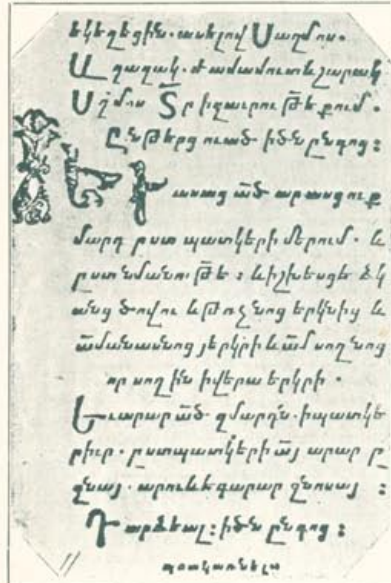 եկեղեցին. ասելով Սաղմոս.
Աղաղակ. ժամամուտե շարակ
Սղմոս Տր իզաւրու թե քում.
Ընթերցուած իծն ընդոց :
Եւ ասաց ած արասցուք
մարդ ըստ պատկերի մերում. և
ըստ նմանութե : և իշխեսցե ձկ
անց ծովու և թռչնոց երկնից և
ամանասնոց յերկրի և ամ սողնոց
որ սողին ի վերա երկրի.
Եւ արար ած զմարդն. ի պատկե
րիւր. ըստ պատկերի այ արար ը
զնայ. արու և եգ արար զնոսայ :
Դարձեալ : իծն ընդոց :